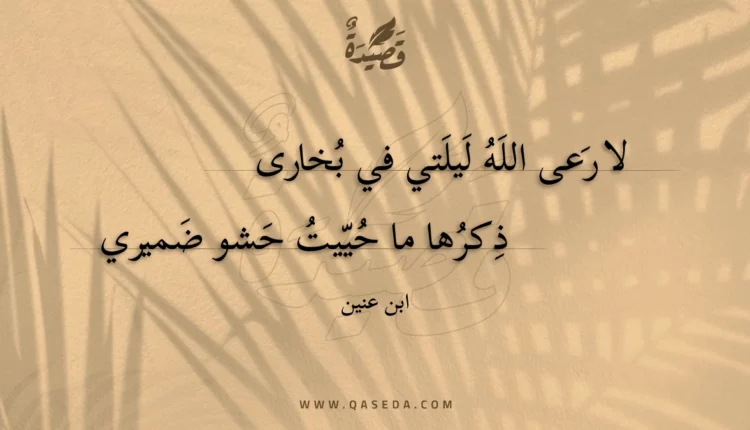 قَصِيْدَةٌ
لا رَعى اللَهُ لَيلَتي في بُخارى
ذِكرُها ما حُيّيتُ حَشو ضَميري
ابن عنين
WWW.QASEDA.COM